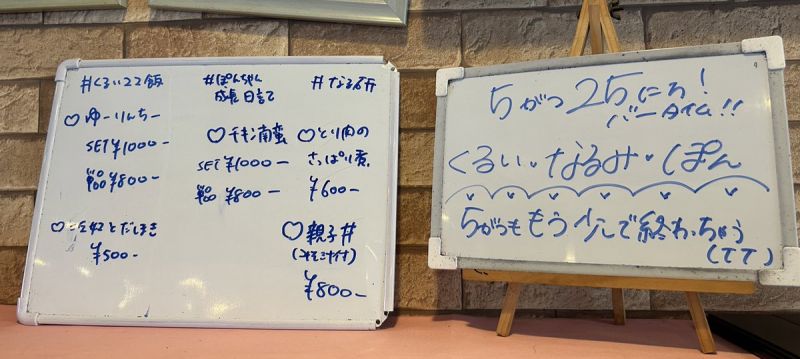 #くるい22飯
♡ゆーりんちー
SET ¥1000-
単品 ¥800-
だしまき
¥500-
#ぽんちゃん
成長日記
♡チキン南蛮
SET ¥1000-
単品 ¥800-
#なる研
♡とり肉の
さっぱり煮
¥600-
♡親子丼
(みそ汁付)
¥800-
5がつ25にち!
バータイム!!
くるい・なるみ・ぽん
5がつももう少しで終わっちゃう
(TT)